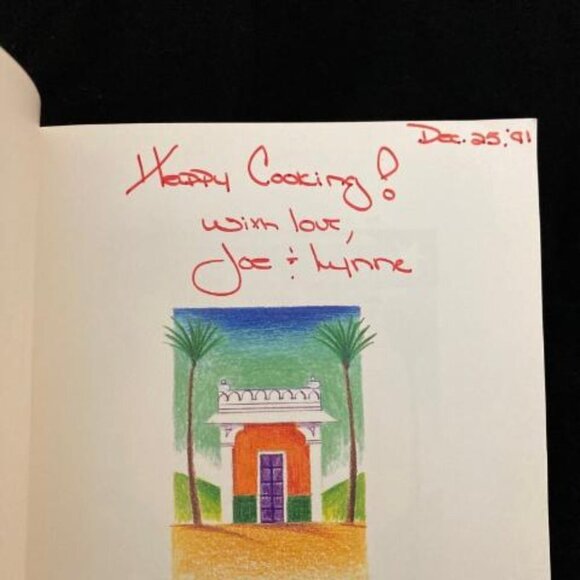 Dec. 25, '91
Happy Cooking!
with love,
Joe & Lynne